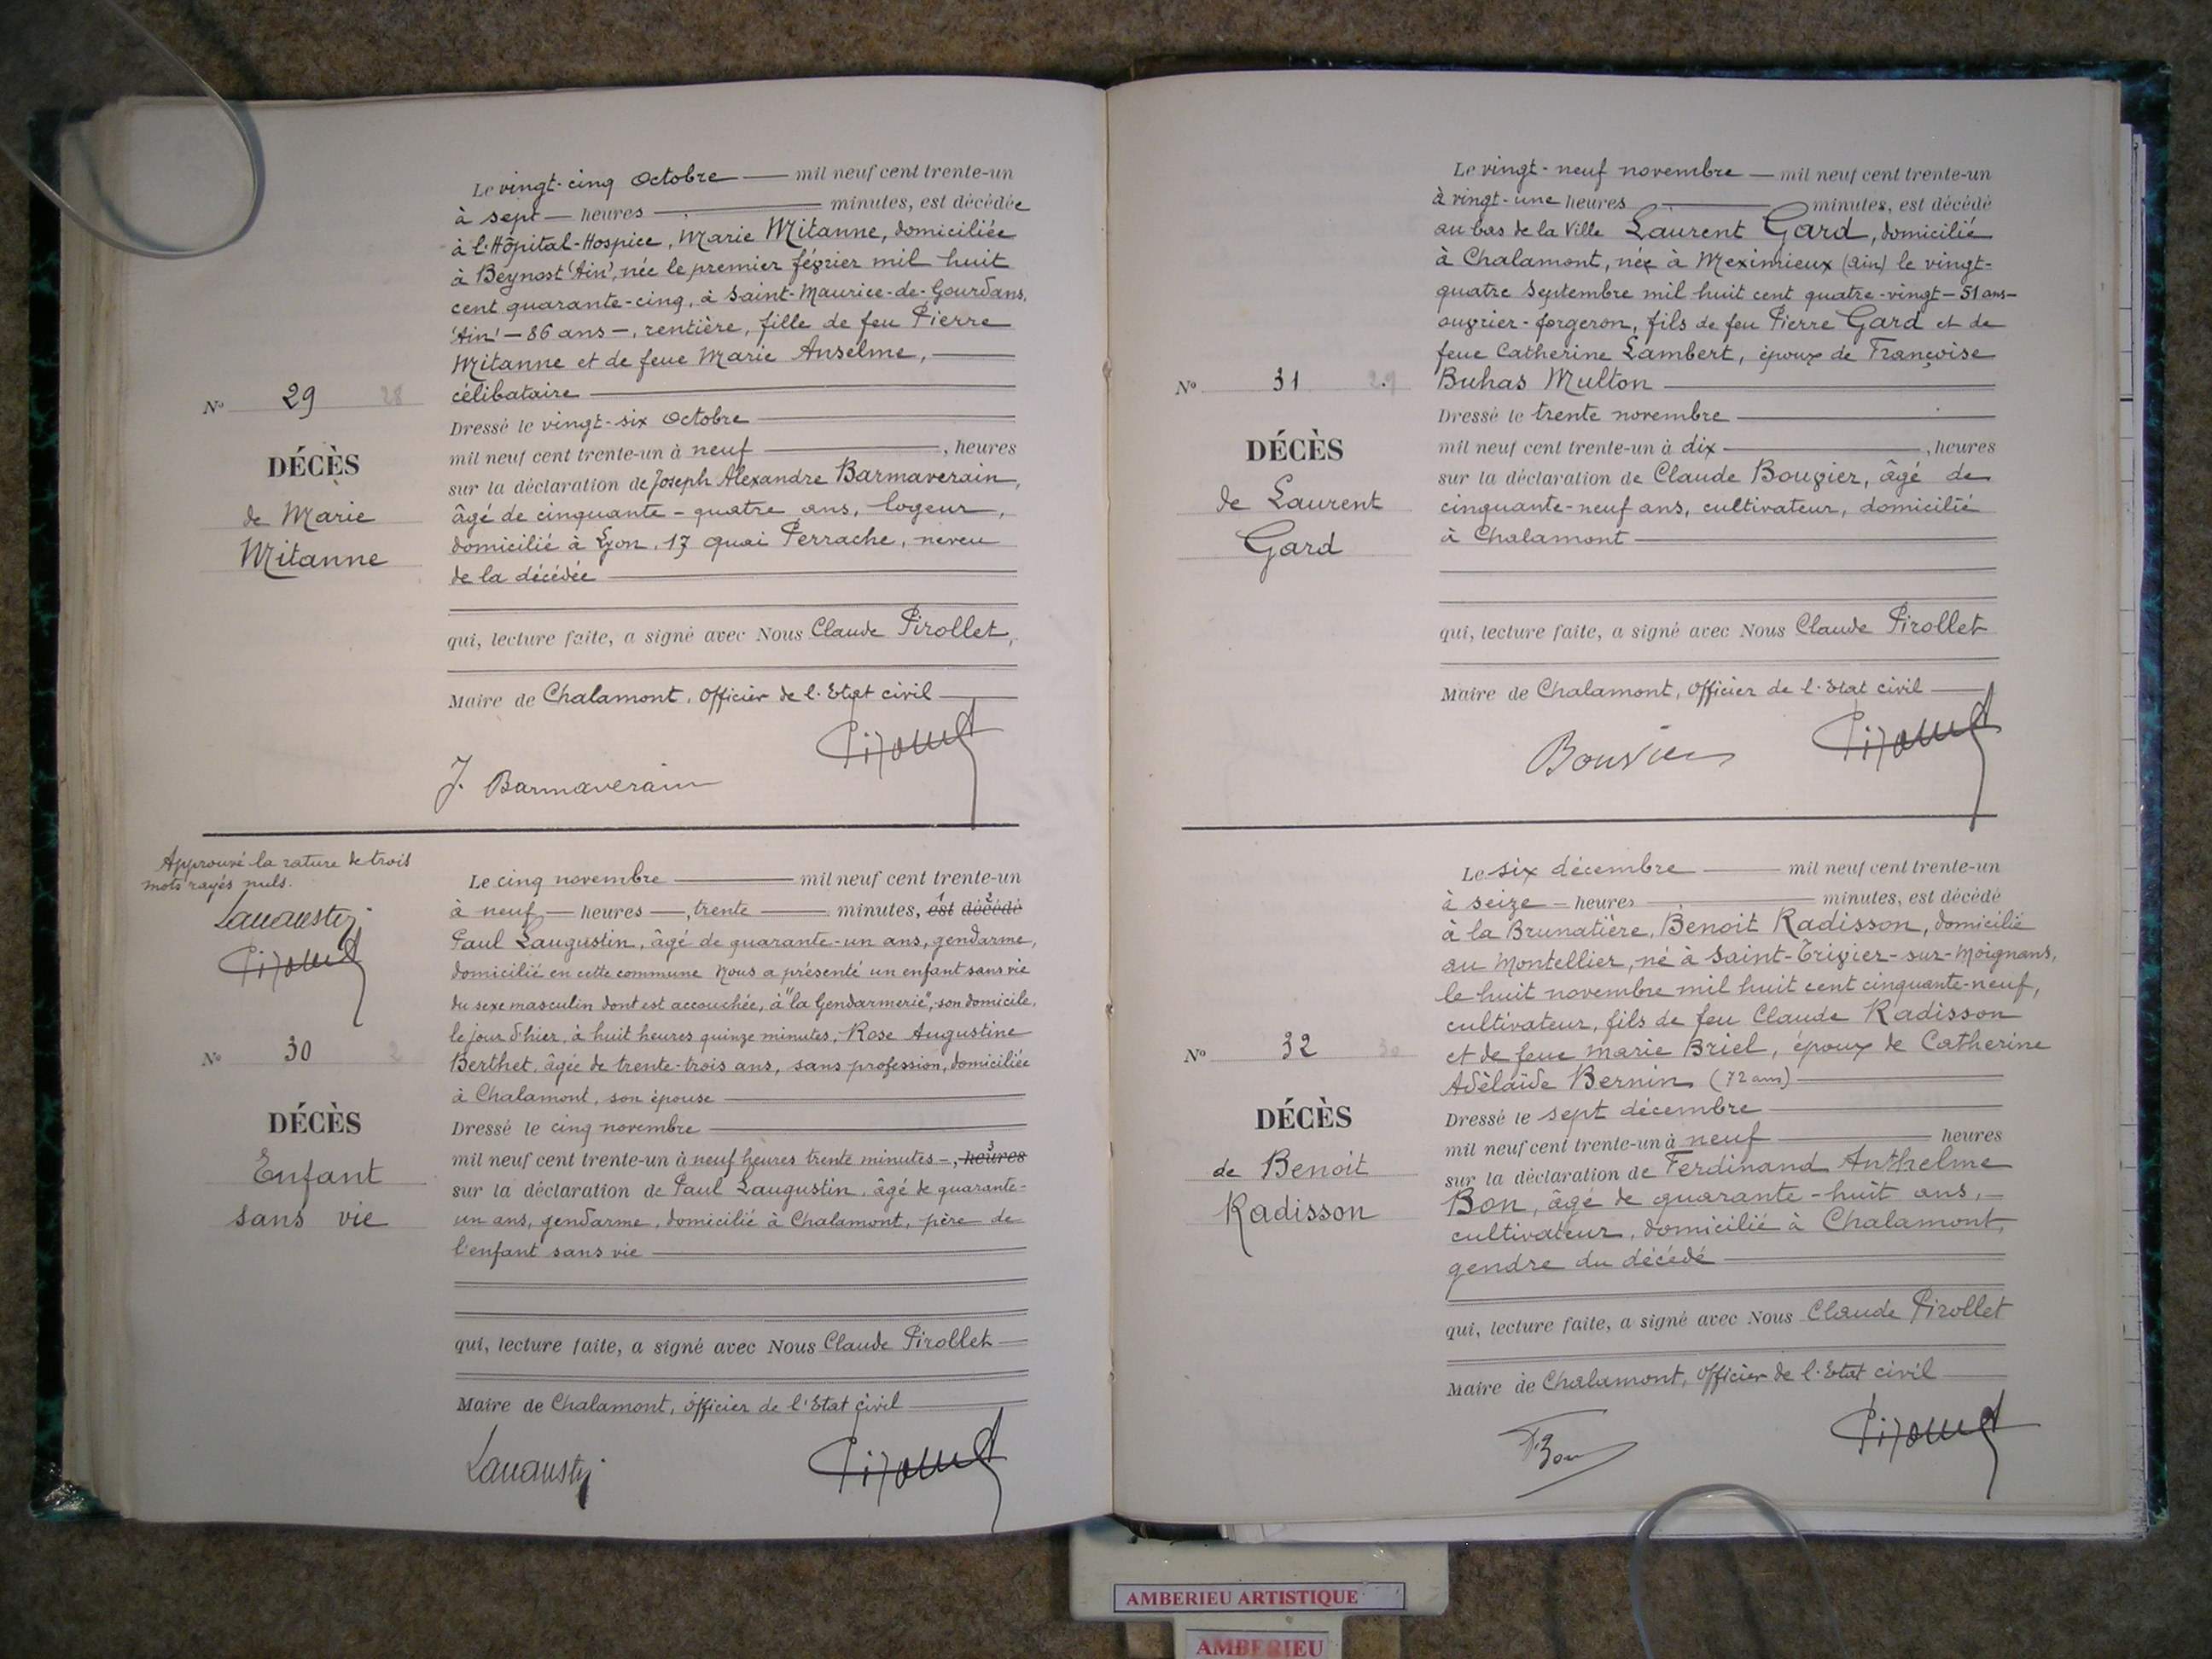 Le vingt-cinq Octobre — mil neuf cent trente-un
à sept — heures — minutes, est décédée
à l'Hôpital-Hospice, Marie Mitanne, domiciliée
à Beynost 'Ain', née le premier février mil huit
cent quarante-cinq, à Saint-Maurice-de-Gourdans,
'Ain' — 86 ans —, rentière, fille de feu Pierre
Mitanne et de feue Marie Anselme, —
célibataire —
N° 29 28
Dressé le vingt-six Octobre —
mil neuf cent trente-un à neuf —, heures
DÉCÈS
de Marie
Mitanne
sur la déclaration de Joseph Alexandre Barmaverain,
âgé de cinquante-quatre ans, logeur,
domicilié à Lyon, 17 quai Perrache, neveu
de la décédée —
qui, lecture faite, a signé avec Nous Claude Pirollet,
Maire de Chalamont, Officier de l'Etat civil —
J. Barmaverain
Approuvé la rature de trois
mots rayés nuls.
Le cinq novembre — mil neuf cent trente-un
à neuf — heures —, trente — minutes, est décédé
Paul Laugustin, âgé de quarante-un ans, gendarme,
domicilié en cette commune Nous a présenté un enfant sans vie
du sexe masculin dont est accouchée, à "la Gendarmerie", son domicile,
le jour d'hier, à huit heures quinze minutes, Rose Augustine
Berthet, âgée de trente-trois ans, sans profession, domiciliée
à Chalamont, son épouse —
N° 30
DÉCÈS
Enfant
sans vie
Dressé le cinq novembre —
mil neuf cent trente-un à neuf heures trente minutes —, heures
sur la déclaration de Paul Laugustin, âgé de quarante-
un ans, gendarme, domicilié à Chalamont, père de
l'enfant sans vie —
qui, lecture faite, a signé avec Nous Claude Pirollet —
Maire de Chalamont, officier de l'Etat civil —
Le vingt-neuf novembre — mil neuf cent trente-un
à vingt-une heures — minutes, est décédé
au bas de la Ville Laurent Gard, domicilié
à Chalamont, né à Meximieux (Ain) le vingt-
quatre Septembre mil huit cent quatre-vingt — 51 ans —
ouvrier-forgeron, fils de feu Pierre Gard et de
feue Catherine Lambert, époux de Françoise
Buhas Multon —
N° 31 29
DÉCÈS
de Laurent
Gard
Dressé le trente novembre —
mil neuf cent trente-un à dix —, heures
sur la déclaration de Claude Bouvier, âgé de
cinquante-neuf ans, cultivateur, domicilié
à Chalamont —
qui, lecture faite, a signé avec Nous Claude Pirollet
Maire de Chalamont, Officier de l'Etat civil —
Bouvier
Le six décembre — mil neuf cent trente-un
à seize — heures — minutes, est décédé
à la Brunatière, Benoit Radisson, domicilié
au Montellier, né à Saint-Trivier-sur-Moignans,
le huit novembre mil huit cent cinquante-neuf,
cultivateur, fils de feu Claude Radisson
et de feue Marie Briel, époux de Catherine
Adèlaïde Bernin (72 ans) —
N° 32 30
DÉCÈS
de Benoit
Radisson
Dressé le sept décembre —
mil neuf cent trente-un à neuf — heures
sur la déclaration de Ferdinand Anthelme
Bon, âgé de quarante-huit ans, —
cultivateur, domicilié à Chalamont,
gendre du décédé —
qui, lecture faite, a signé avec Nous Claude Pirollet
Maire de Chalamont, Officier de l'Etat civil —
F. Bon
AMBERIEU ARTISTIQUE
AMBERIEU